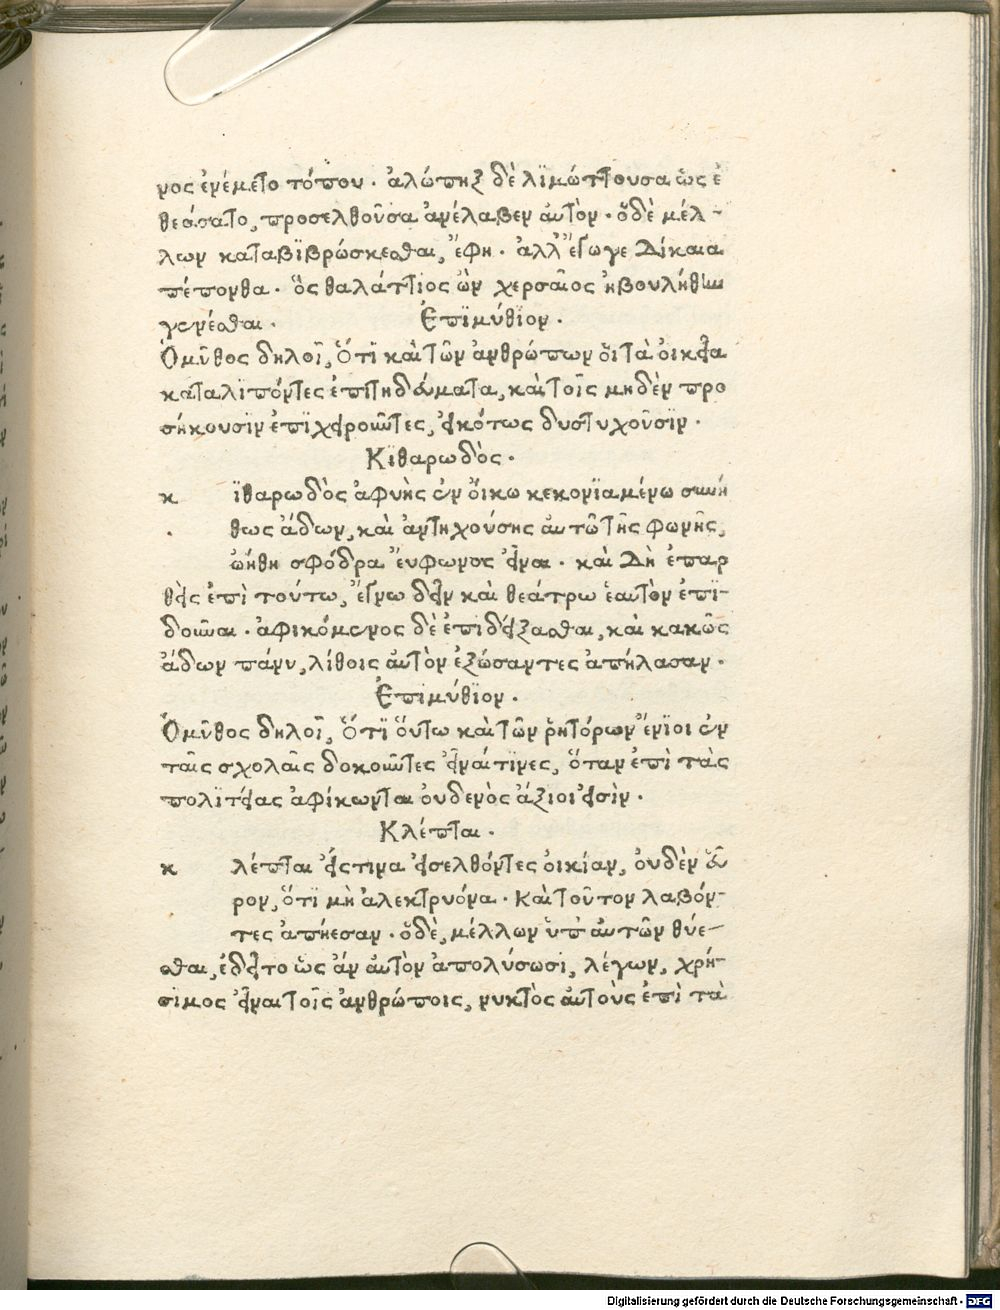 νος ἐνέμετο τόπον. ἀλώπηξ δὲ λϊμώττουσα ὡς ἐ
θεάσατο, προσελθοῦσα ἀνέλαβεν ἀυτὸν. ὅδὲ μέλ-
λων καταβϊβρώσκεσθαι, ἔφη. ἀλλ' ἔγωγε Δίκαια
πέπονθα. ὃς θαλάττιος ὢν χερσαῖος ἠβουλήθην
γενέσθαι. Ἐπϊμύθϊον.
Ὁμῦθος δηλοῖ, Ὅτϊ καὶ τῶν ἀνθρώπων ὅι τὰ ὀικεῖα
καταλϊπόντες ἐπιτηδεύματα, καὶ τοῖς μηδὲν προ
σήκουσϊν ἐπϊχειροῦντες, εἰκότως δυστυχοῦσϊν.
Κϊθαρωδὸς.
κ ϊθαρωδὸς ἀφυὴς ἐν ὄικω κεκονϊαμένω συνή
θως ἄδων, καὶ ἀντηχούσης ἀυτῶ τῆς φωνῆς,
ὠήθη σφόδρα ἔυφωνος εἶναι. καὶ Δὴ ἐπαρ
θεὶς ἐπὶ τούτω, ἔγνω δεῖν καὶ θεάτρω ἑαυτὸν ἐπϊ-
δοῦναι. ἀφικόμενος δὲ ἐπιδείξασθαι, καὶ κακῶς
ἄδων πάνυ, λίθοις ἀυτὸν ἐξώσαντες ἀπήλασαν.
Ἐπιμύθϊον.
Ὁμῦθος δηλοῖ, Ὅτϊ ὅυτω καὶ τῶν ῥητόρων ἔνϊοι ἐν
ταῖς σχολαῖς δοκοῦντες εἶναί τϊνες, ὅταν ἐπὶ τὰς
πολϊτείας ἀφίκωνται ὀυδενὸς ἄξιοι εἰσὶν.
Κλέπται.
κ λέπται εἴς τινα εἰσελθόντες ὀικίαν, ὀυδὲν εὗ
ρον, ὅτϊ μὴ ἀλεκτρυόνα. Καὶ τοῦτον λαβόν-
τες ἀπήεσαν. ὅδὲ, μέλλων ὑπ' ἀυτῶν θύε-
σθαι, ἐδεῖτο ὡς ἂν ἀυτὸν ἀπολύσωσι, λέγων, χρή-
σιμος εἶναι τοῖς ἀνθρώποις, νυκτὸς ἀυτοὺς ἐπὶ τὰ
Digitalisierung gefördert durch die Deutsche Forschungsgemeinschaft - DFG